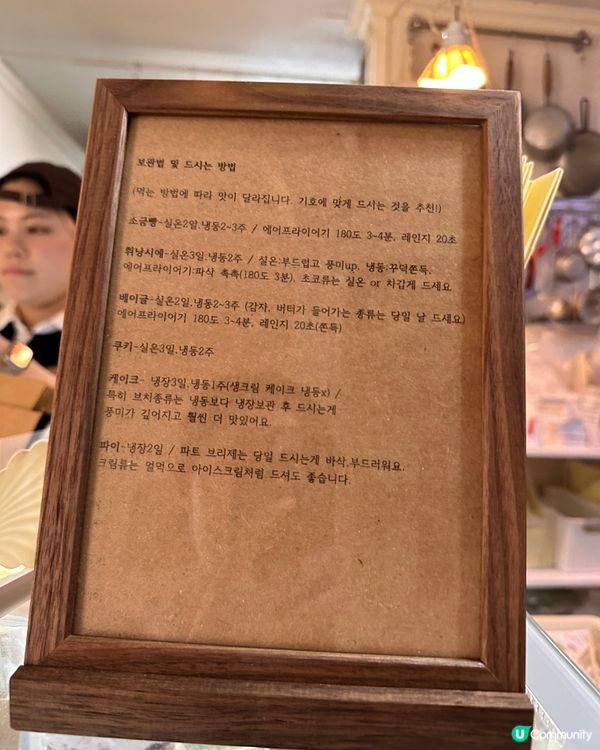 보관법 및 드시는 방법
(먹는 방법에 따라 맛이 달라집니다. 기호에 맞게 드시는 것을 추천!)
소금빵-실온2일.냉동2~3주 / 에어프라이어기 180도 3~4분, 레인지 20초
휘낭시에-실온3일.냉동2주 / 실온:부드럽고 풍미up, 냉동:꾸덕쫀득,
에어프라이어기:파삭 촉촉(180도 3분), 초코류는 실온 or 차갑게 드세요
베이글-실온2일.냉동2~3주 (감자, 버터가 들어가는 종류는 당일 날 드세요)
에어프라이어기 180도 3~4분, 레인지 20초(쫀득)
쿠키-실온3일.냉동2주
케이크- 냉장3일.냉동1주(생크림 케이크 냉동x) /
특히 브치종류는 냉동보다 냉장보관 후 드시는게
풍미가 깊어지고 훨씬 더 맛있어요.
파이-냉장2일 / 파트 브리제는 당일 드시는게 바삭.부드러워요.
크림류는 얼먹으로 아이스크림처럼 드셔도 좋습니다.
U Community